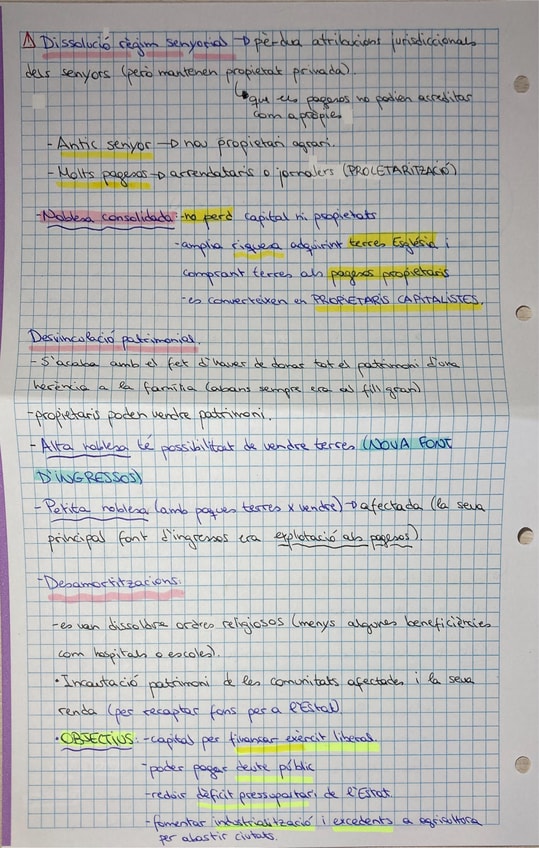 ⚠ Dissolució règim senyorial → pèrdua atribucions jurisdiccionals
dels senyors (però mantenen propietat privada).
↳ que els pagesos no podien acreditar
com a pròpies
- Antic senyor → nou propietari agrari.
- Molts pagesos → arrendataris o jornalers (PROLETARITZACIÓ)
- Noblesa consolidada: - no perd capital ni propietats
- amplia riquesa adquirint terres Església i
comprant terres als pagesos propietaris
- es converteixen en PROPIETARIS CAPITALISTES.
Desvinculació patrimonial.
- S'acaba amb el fet d'haver de donar tot el patrimoni d'una
herència a la família (abans sempre era al fill gran)
- propietaris poden vendre patrimoni.
- Alta noblesa té possibilitat de vendre terres (NOVA FONT
D'INGRESSOS)
- Petita noblesa (amb poques terres x vendre) → afectada (la seva
principal font d'ingressos era explotació als pagesos).
- Desamortitzacions.
- es van dissoldre ordres religiosos (menys algunes beneficiències
com hospitals o escoles).
• Incautació patrimoni de les comunitats afectades i la seva
renda (per recaptar fons per a l'Estat).
• OBJECTIUS: - capital per finançar exèrcit liberal.
- poder pagar deute públic
- reduir dèficit pressupostari de l'Estat.
- fomentar industrialització i excedents a agricultura
per abastir ciutats.